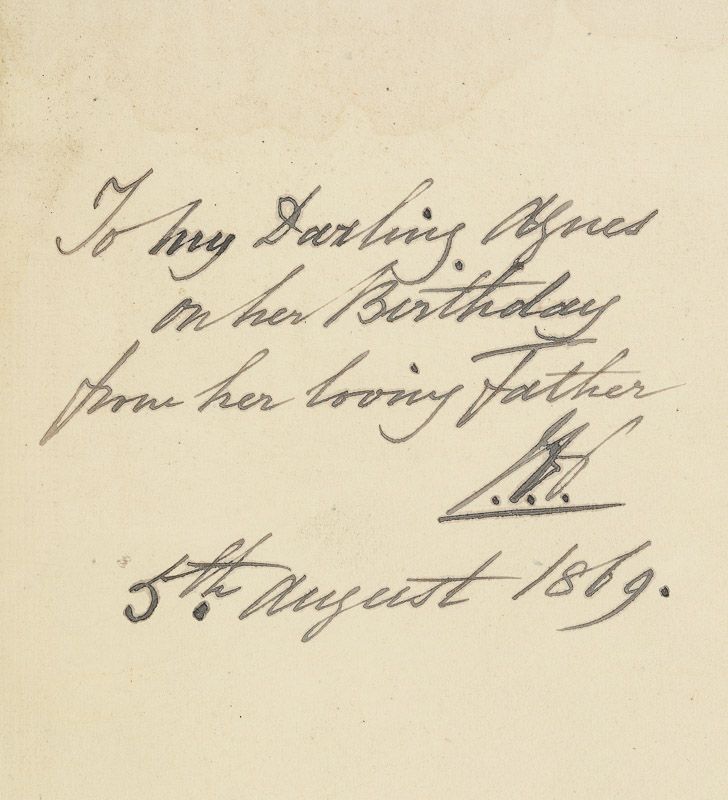 To my Darling Agnes
on her Birthday
from her loving Father
5th. August 1869.